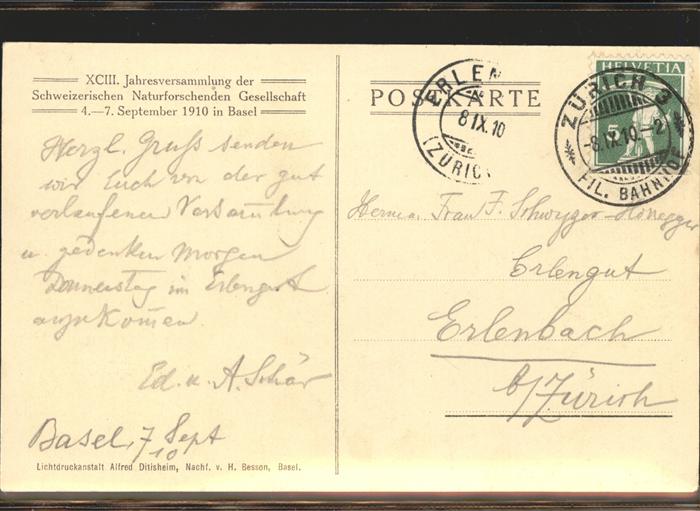 XCIII. Jahresversammlung der
Schweizerischen Naturforschenden Gesellschaft
4.—7. September 1910 in Basel
Herzl. Gruss senden
wir Euch von der gut
verlaufenen Versammlung
u. gedenken Morgen
Donnerstag im Erlengut
anzukommen.
Ed. u. A. Schär
Basel, 7 Sept
10
Lichtdruckanstalt Alfred Ditisheim, Nachf. v. H. Besson, Basel.
POSTKARTE
ERLEN
8 IX. 10
(ZÜRICH
HELVETIA
ZÜRICH 3
-8.IX.10.-2
FIL. BAHNHOF
Herrn u. Frau F. Schwyzer-Honegger
Erlengut
Erlenbach
b/Zürich